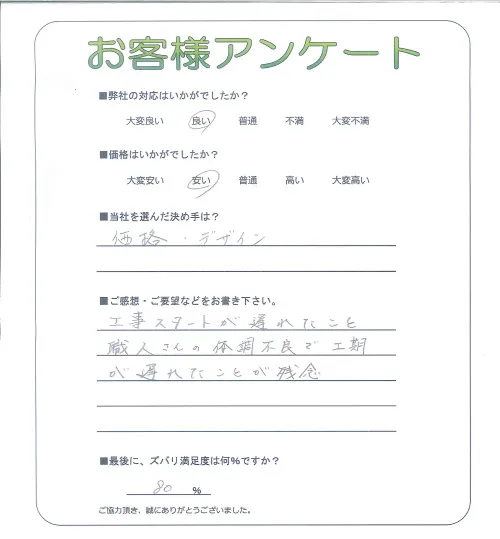 お客様アンケート
■弊社の対応はいかがでしたか？
大変良い 良い 普通 不満 大変不満
■価格はいかがでしたか？
大変安い 安い 普通 高い 大変高い
■当社を選んだ決め手は？
価格・デザイン
■ご感想・ご要望などをお書き下さい。
工事スタートが遅れたこと
職人さんの体調不良で工期
が遅れたことが残念
■最後に、ズバリ満足度は何％ですか？
80 %
ご協力頂き、誠にありがとうございました。